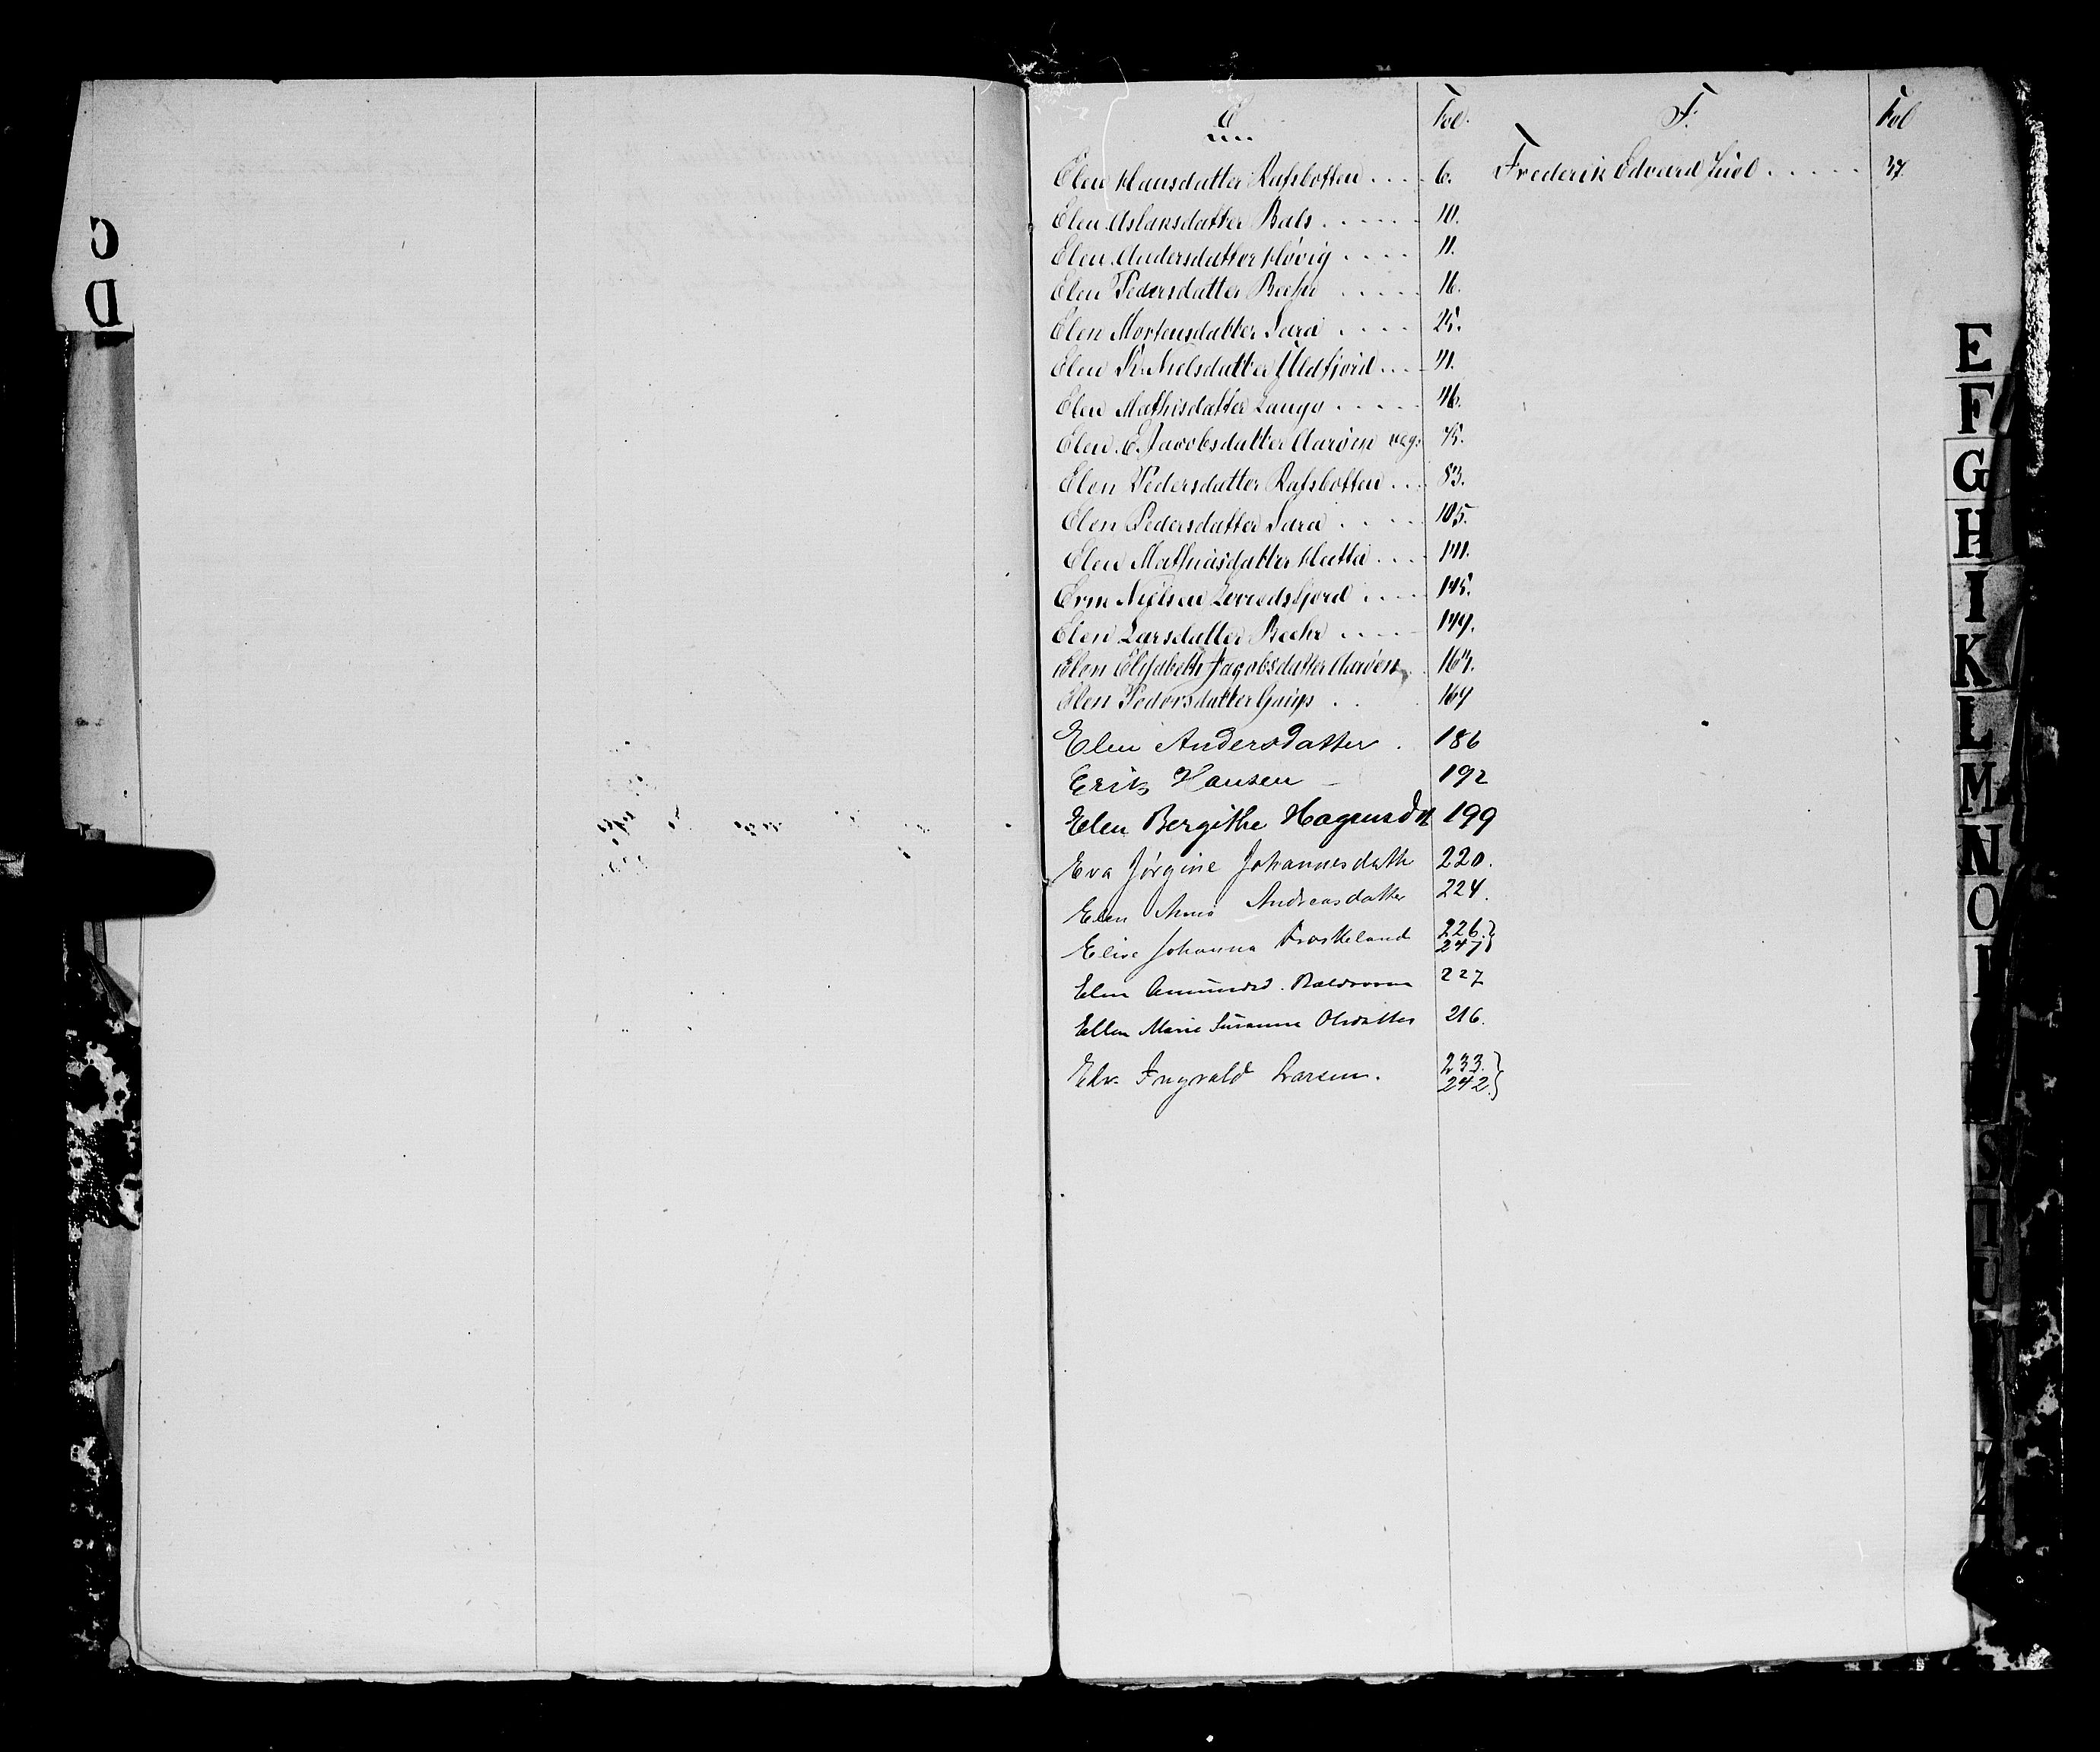 C
D
E
Fol.
Elen Hansdatter Rafsbotten . . . . 6.
Elen Aslaksdatter Bals . . . . . . 10.
Elen Andersdatter Høvig . . . . 11.
Elen Pedersdatter . . . . . 16.
Elen Mortensdatter Sara . . . . 25.
Elen Nielsdatter . . .
Elen Mathisdatter Lango . . . . . 46.
Elen E. Jacobsdatter Aarøen 75.
Elen Pedersdatter Rafsbotten . . . 83.
Elen Pedersdatter Sara . . . . . 105.
Elen Mathiasdatter Hætta . . . 141.
Nielsen . . . . 145.
Elen Larsdatter . . . . . 149.
Elen Elisabeth Jacobsdatter Aarøen
Elen Pedersdatter Gaup . .
Elen Andersdatter . 186
Erik Hansen 192
Elen Bergithe 199
Eva Jørgine Johannesdatter 220.
Elen Anna Andreasdatter 224.
Elise Johanna 226.
247
Elen Amundsd. 227
Ellen Marie Susanna Olsdatter 216.
Edv. Ingvald Larsen. 233.
242.
F.
Fol
Frederik Edvard . . . . . 37.
E
F
G
H
I
K
L
M
N
O
S
T
U